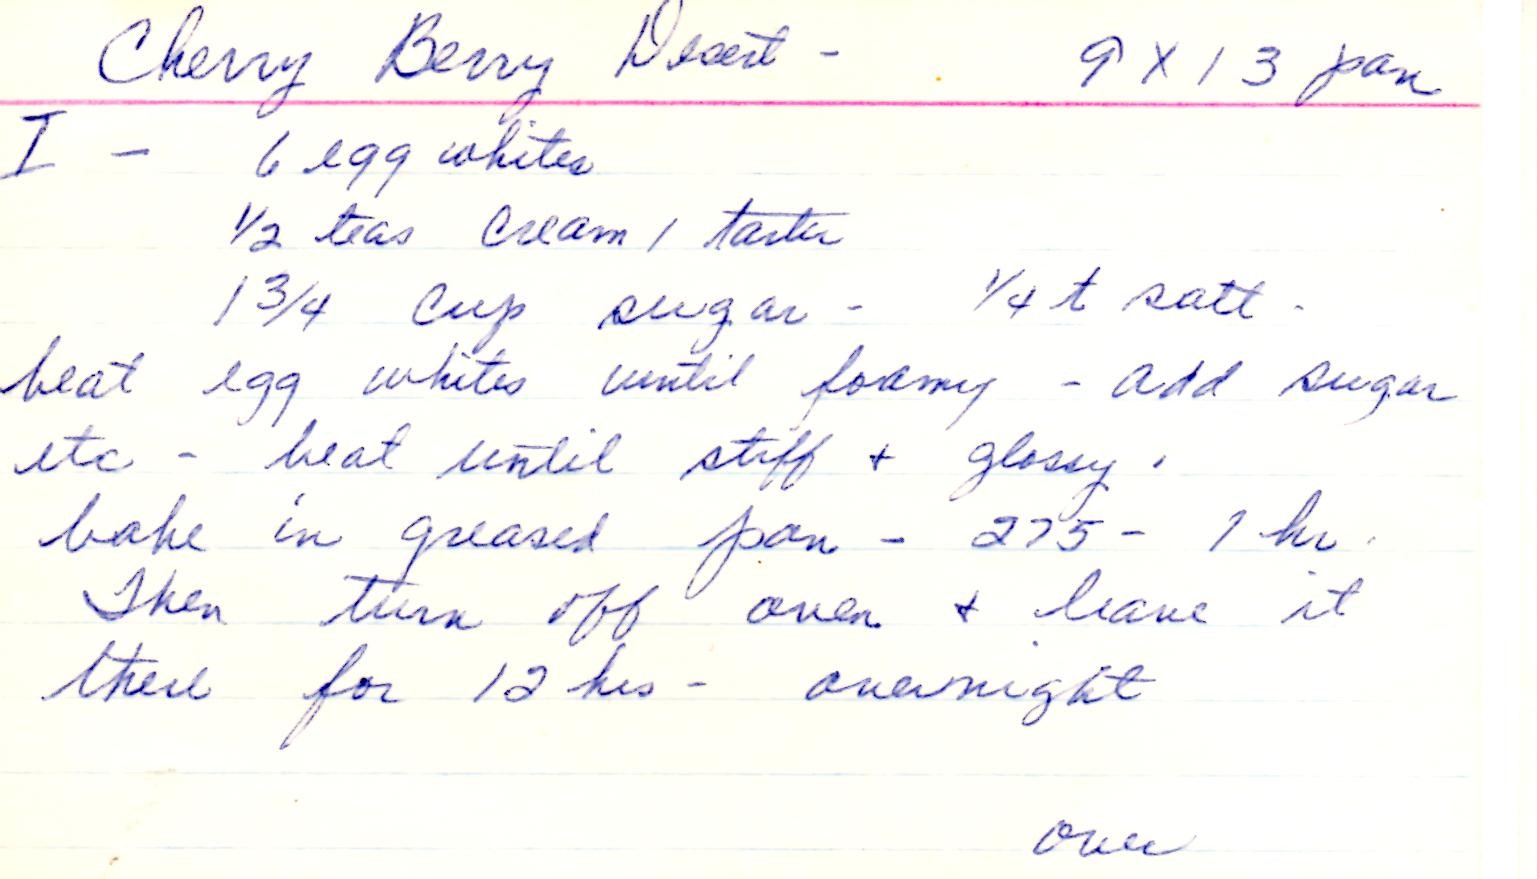 Cherry Berry Desert - 9 X 13 pan
I - 6 egg whites
1/2 teas cream / tarter
1 3/4 cup sugar - 1/4 t salt -
beat egg whites until foamy - add sugar
etc - beat until stiff + glossy.
bake in greased pan - 275 - 1 hr.
Then turn off oven + leave it
there for 12 hrs - overnight
over